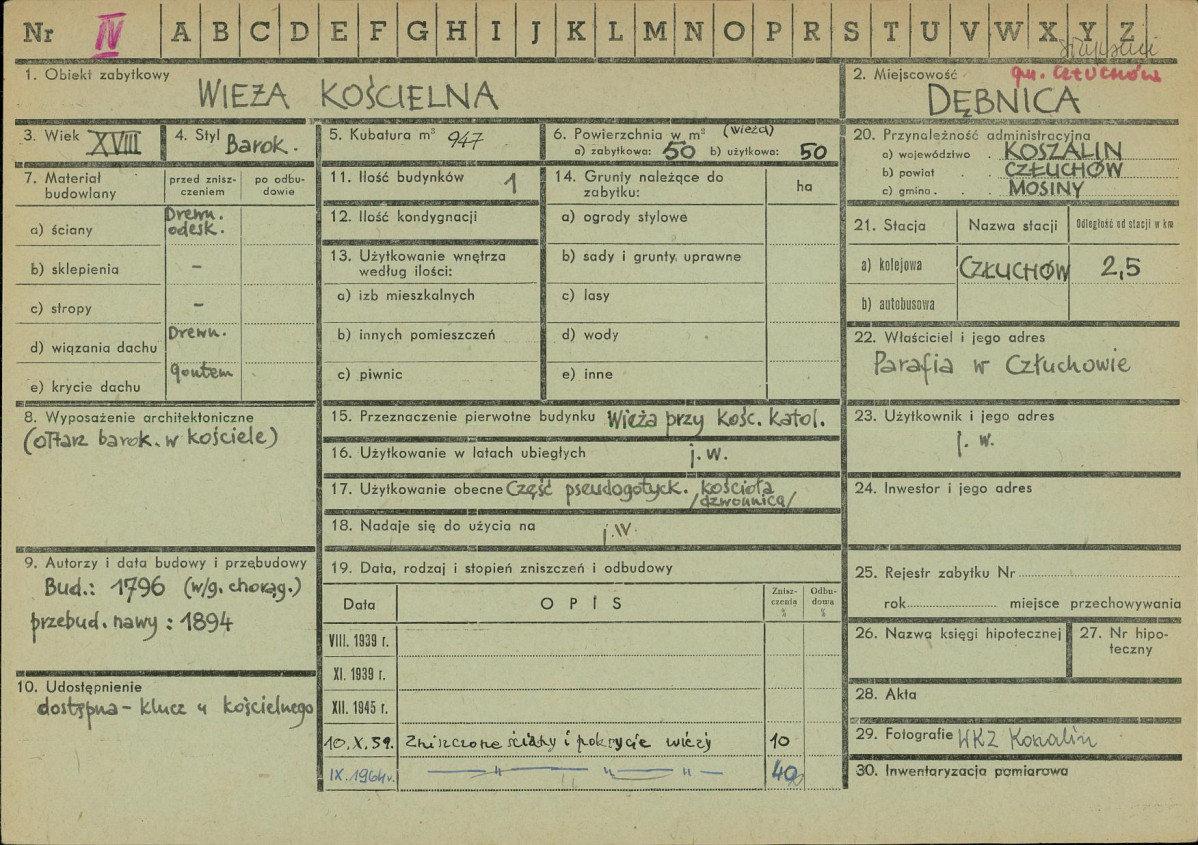 Nr IV A B C D E F G H I J K L M N O P R S T U V W X Y Z
1. Obiekt zabytkowy
WIEŻA KOŚCIELNA
2. Miejscowość
gm. CZŁUCHÓW
DĘBNICA
3. Wiek XVIII
4. Styl Barok.
5. Kubatura m³ 947
6. Powierzchnia w m² (wieża)
a) zabytkowa: 50 b) użytkowa: 50
7. Materiał budowlany
przed znisz-
czeniem
po odbu-
dowie
a) ściany Drewn. odesk.
b) sklepienia –
c) stropy –
d) wiązania dachu Drewn.
e) krycie dachu gontem
8. Wyposażenie architektoniczne
(ołtarz barok. w kościele)
9. Autorzy i data budowy i przebudowy
Bud.: 1796 (w/g. chorąg.)
przebud. nawy : 1894
10. Udostępnienie
dostępna – klucz u kościelnego
11. Ilość budynków 1
12. Ilość kondygnacji
13. Użytkowanie wnętrza
według ilości:
a) izb mieszkalnych
b) innych pomieszczeń
c) piwnic
14. Grunty należące do
zabytku:
ha
a) ogrody stylowe
b) sady i grunty uprawne
c) lasy
d) wody
e) inne
15. Przeznaczenie pierwotne budynku Wieża przy Kośc. Katol.
16. Użytkowanie w latach ubiegłych j. w.
17. Użytkowanie obecne Część pseudogotyck. kościoła
/dzwonnica/
18. Nadaje się do użycia na j. w.
19. Data, rodzaj i stopień zniszczeń i odbudowy
Data OPIS
Znisz-
czenia
%
Odbu-
dowa
%
VIII. 1939 r.
XI. 1939 r.
XII. 1945 r.
10. X. 59. Zniszczone ściany i pokrycie wieży 10
IX. 1964 r. — " — " — " — 40
20. Przynależność administracyjna
a) województwo . KOSZALIN
b) powiat . CZŁUCHÓW
c) gmina . MOSINY
21. Stacja
Nazwa stacji
Odległość od stacji w km
a) kolejowa CZŁUCHÓW 2,5
b) autobusowa
22. Właściciel i jego adres
Parafia w Człuchowie
23. Użytkownik i jego adres
j. w.
24. Inwestor i jego adres
25. Rejestr zabytku Nr
rok miejsce przechowywania
26. Nazwa księgi hipotecznej
27. Nr hipo-
teczny
28. Akta
29. Fotografie WKZ Koszalin
30. Inwentaryzacja pomiarowa